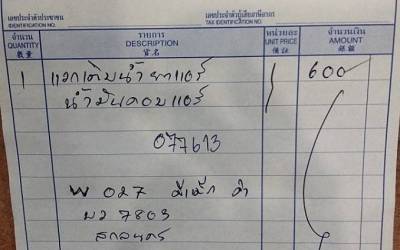 เลขประจำตัวประชาชน เลขประจำตัวผู้เสียภาษีอากร
IDENTIFICATION NO. TAX IDENTIFICATION NO.
จำนวน รายการ หน่วยละ จำนวนเงิน
QUANTITY DESCRIPTION UNIT PRICE AMOUNT
數量 貨名 價 銀額
1 แวคเติมน้ำยาแอร์ 600
น้ำมันคอมแอร์
077613
W 027 มีเน้ก ดำ
บว 7803
สกลนคร